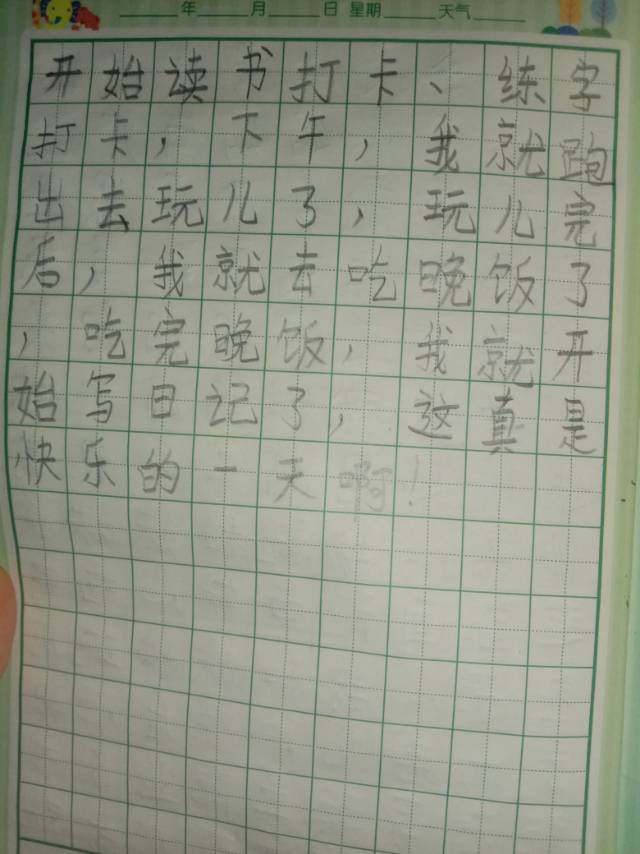 年 月 日 星期 天气
开始读书打卡、练字
打卡，下午，我就跑
出去玩儿了，玩儿完
后，我就去吃晚饭了
，吃完晚饭，我就开
始写日记了，这真是
快乐的一天啊！